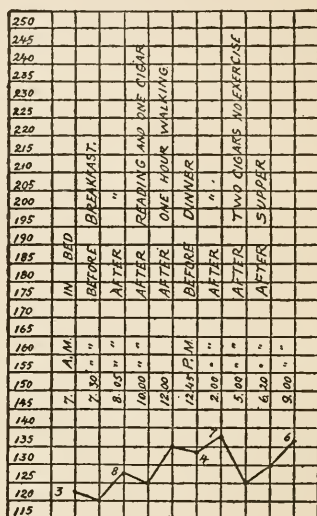 250
245
240
235
230
225
220
215
210
205
200
195
190
185
180
175
170
165
160
155
150
145
140
135
130
125
120
115
7. A.M. IN BED
7.30 " " BEFORE BREAKFAST.
8.05 " " AFTER "
10.00 " " AFTER READING AND ONE CIGAR
12.00 AFTER ONE HOUR WALKING.
12.45 P.M. BEFORE DINNER
2.00 " " AFTER "
5.00 " " AFTER TWO CIGARS NO EXERCISE
6.20 " " AFTER SUPPER
9.00 "
3
8
4
7
6